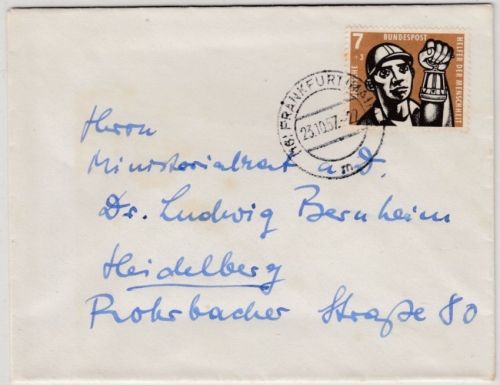 7
+3
DEUTSCHE
BUNDESPOST
HELFER DER MENSCHHEIT
(16) FRANKFURT (MAIN)
23.10.57.-22
m
Herrn
Ministerialrat a.D.
Dr. Ludwig Bernheim
Heidelberg
Rohrbacher Straße 80